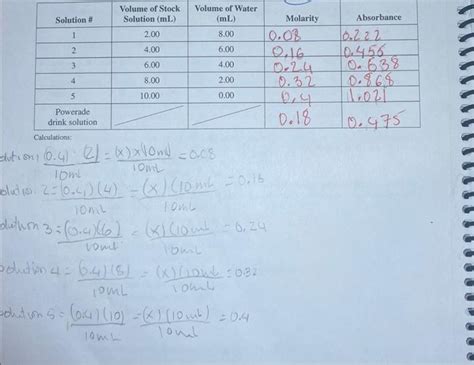 Solution # Volume of Stock Solution (mL) Volume of Water (mL) Molarity Absorbance
1 2.00 8.00 0.08 0.222
2 4.00 6.00 0.16 0.455
3 6.00 4.00 0.24 0.638
4 8.00 2.00 0.32 0.868
5 10.00 0.00 0.4 1.021
Powerade drink solution 0.18 0.475
Calculations:
olution 1 (0.4) (2) = (x) x 10 ml = 0.08
10ml 10mL
olution 2 = (0.4)(4) = (x)(10mL = 0.16
10mL 10mL
olution 3 = (0.4)(6) = (x)(10mL = 0.24
10mL 10mL
olution 4 = (0.4)(8) = (x)(10mL = 0.32
10mL 10mL
olution 5 = (0.4)(10) = (x)(10mL) = 0.4
10mL 10mL